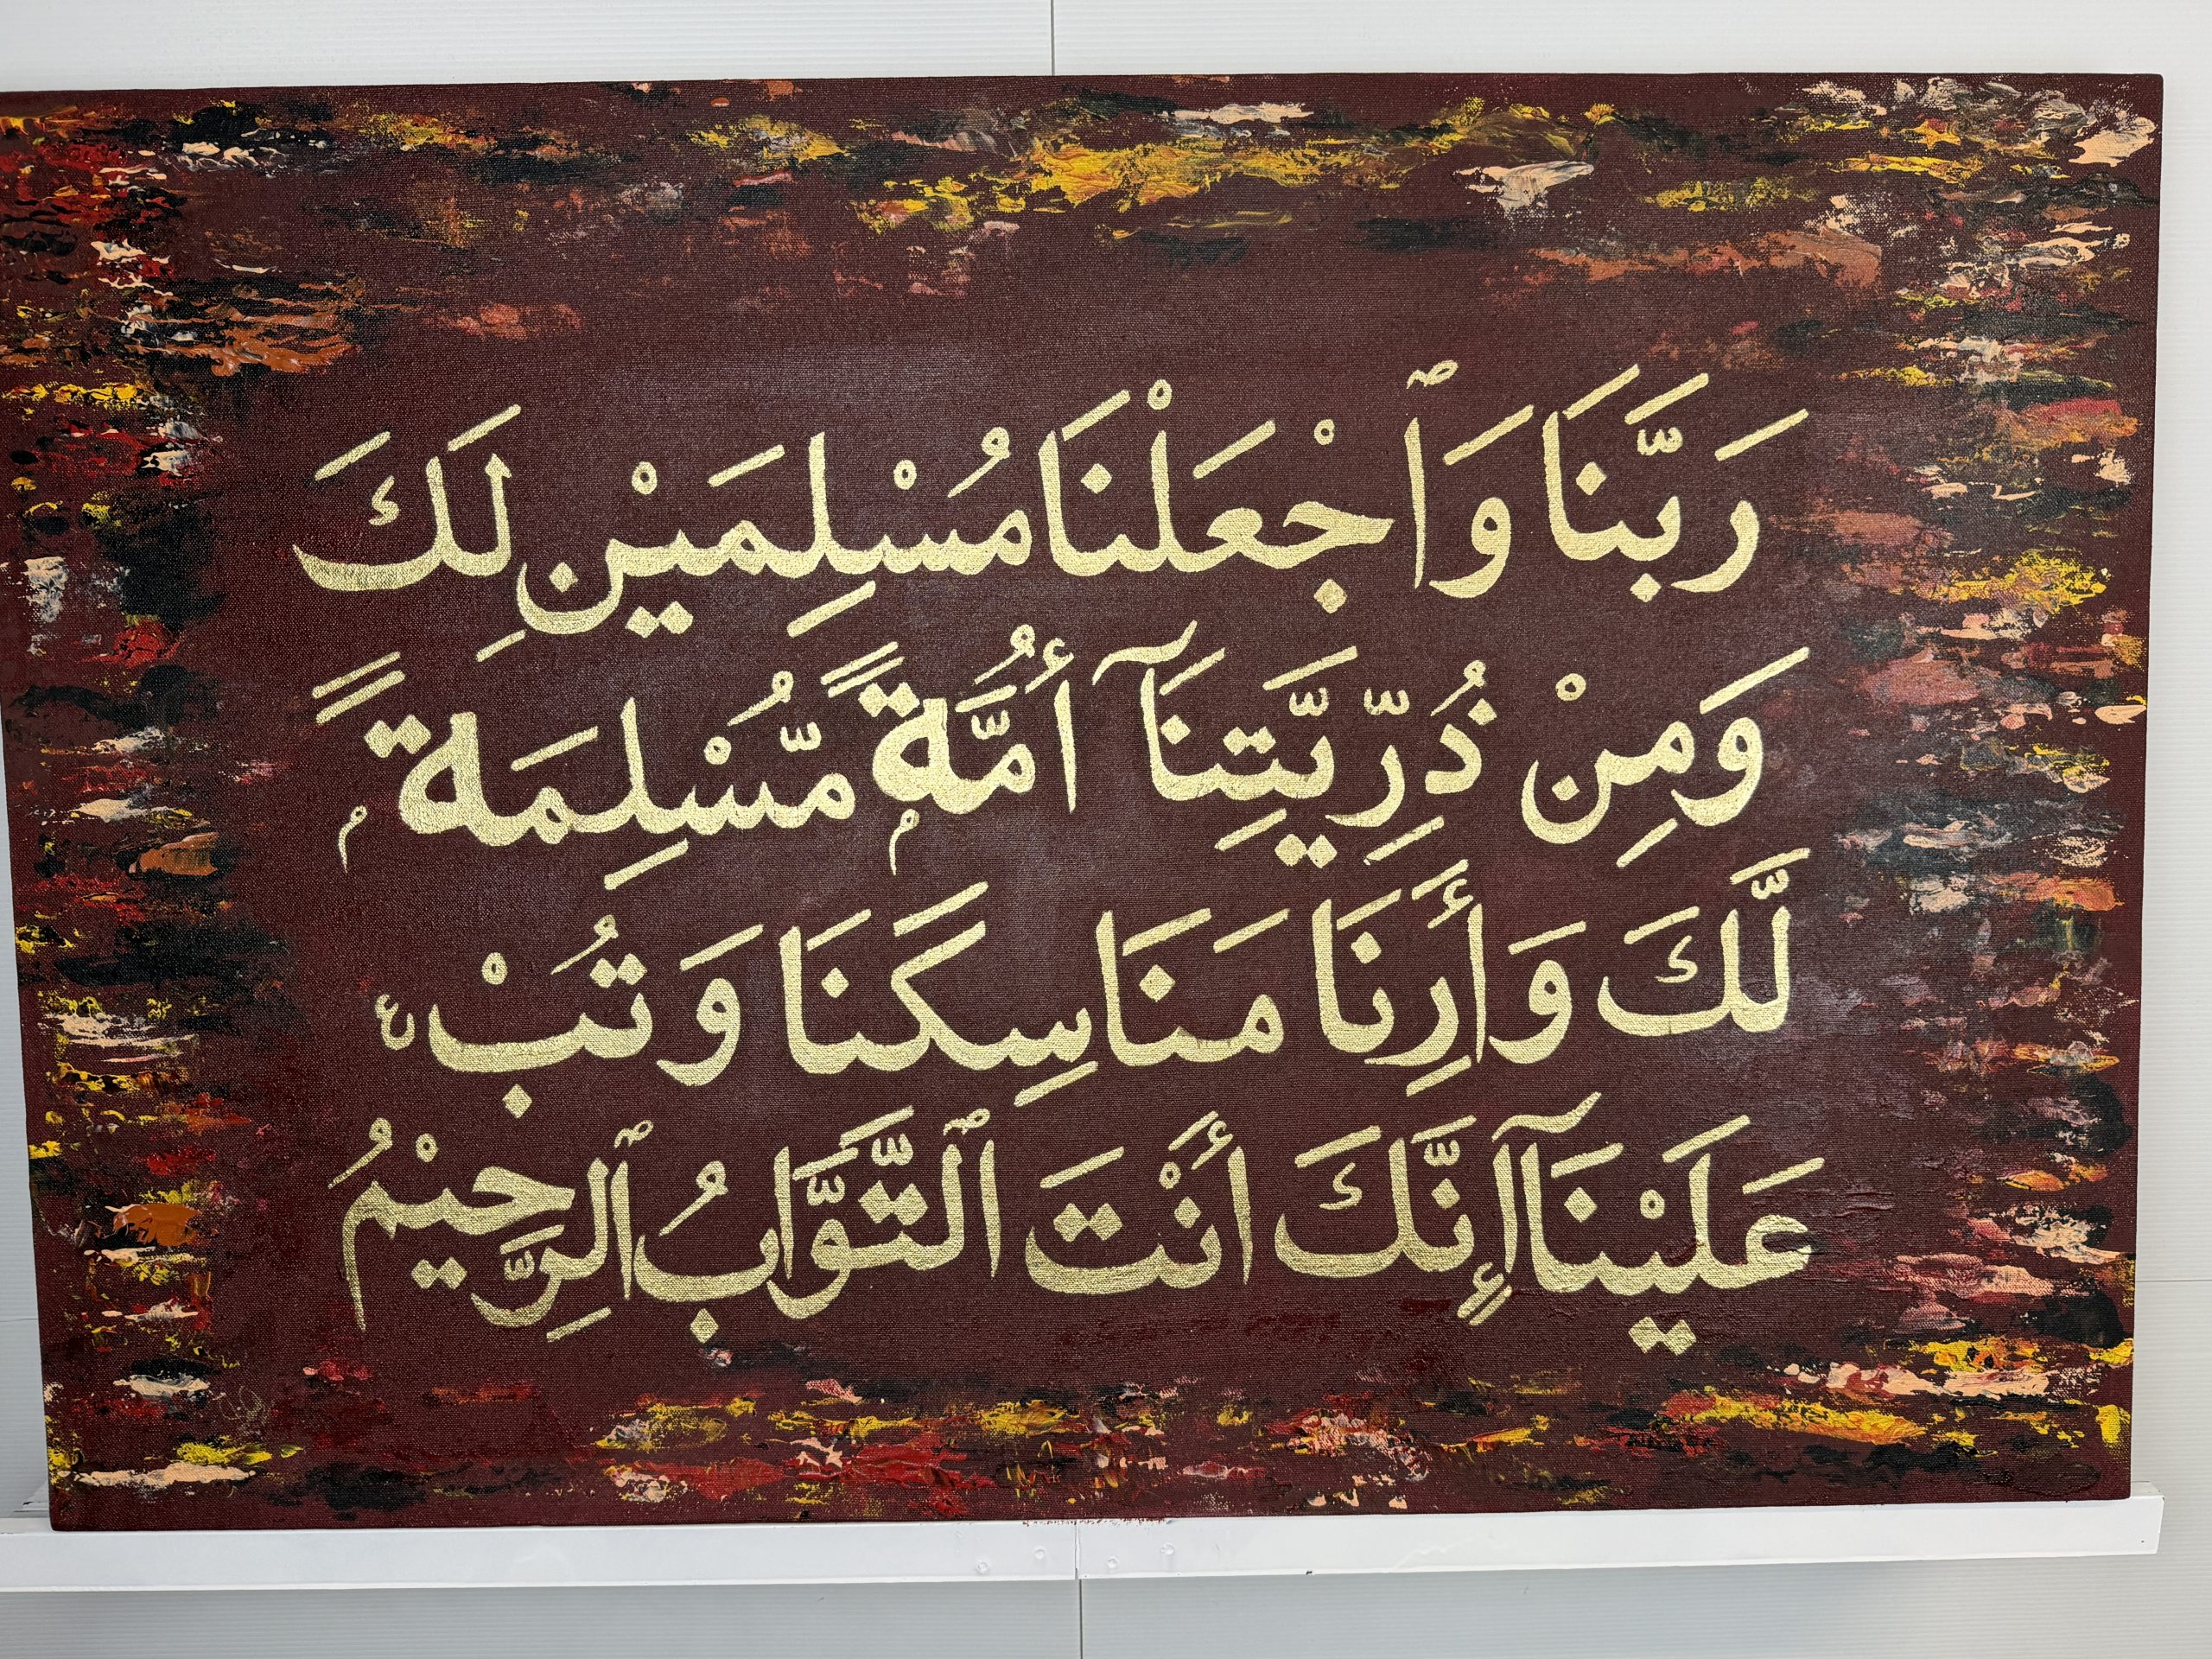 رَبَّنَا وَٱجْعَلْنَا مُسْلِمَيْنِ لَكَ
وَمِنْ ذُرِّيَّتِنَآ أُمَّةً مُّسْلِمَةً
لَّكَ وَأَرِنَا مَنَاسِكَنَا وَتُبْ
عَلَيْنَآ إِنَّكَ أَنْتَ ٱلتَّوَّابُ ٱلرَّحِيْمُ